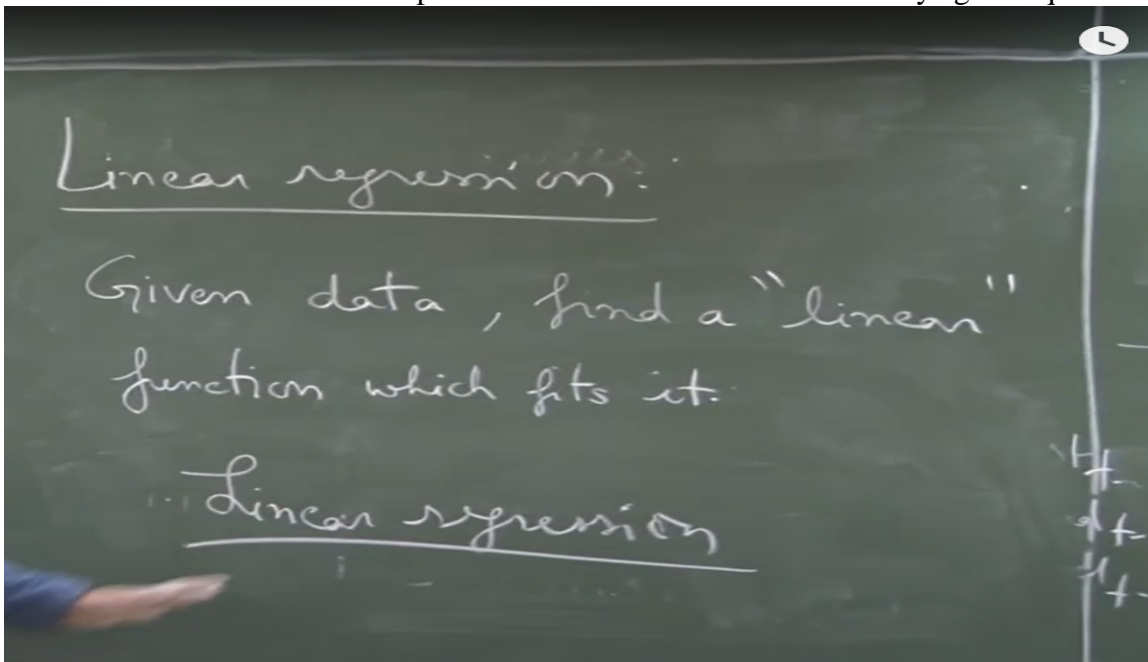 Linear regression:
Given data, find a "linear"
function which fits it.
Linear regression